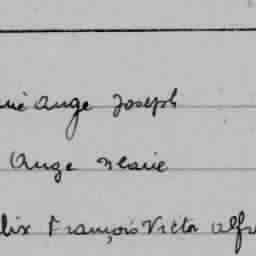 rie Ange Joseph
Ange Marie
lix François Victor Alfr